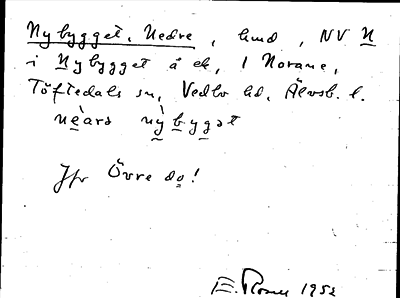 Nybygget, Nedre, hmd, NV N
i Nybygget å ek, 1 Norane,
Töftedals sn, Vedbo hd, Älvsb. l.
nèarə nỳbygət
Jfr Övre do!
E. 1952